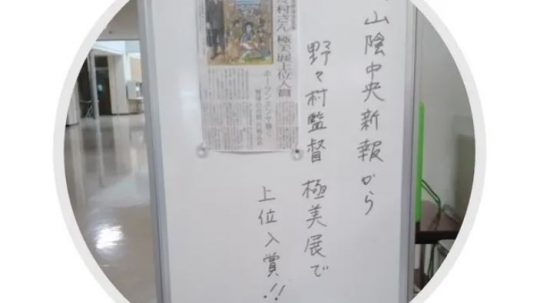 山陰中央新報から
野々村監督 極美展で
上位入賞!!
村さん 極美展上位入賞